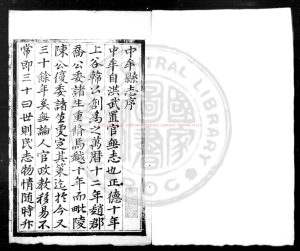 中牟縣志序
中牟自洪武置官無志也正德十年
上谷韓以創爲之萬曆十二年趙郡
喬公委諸生重脩焉越十年而毗陵
陳公復委諸生更定其策迄於今又
三十餘年矣無論人官政教移易不
常即三十曰世則民志物情隨時亦